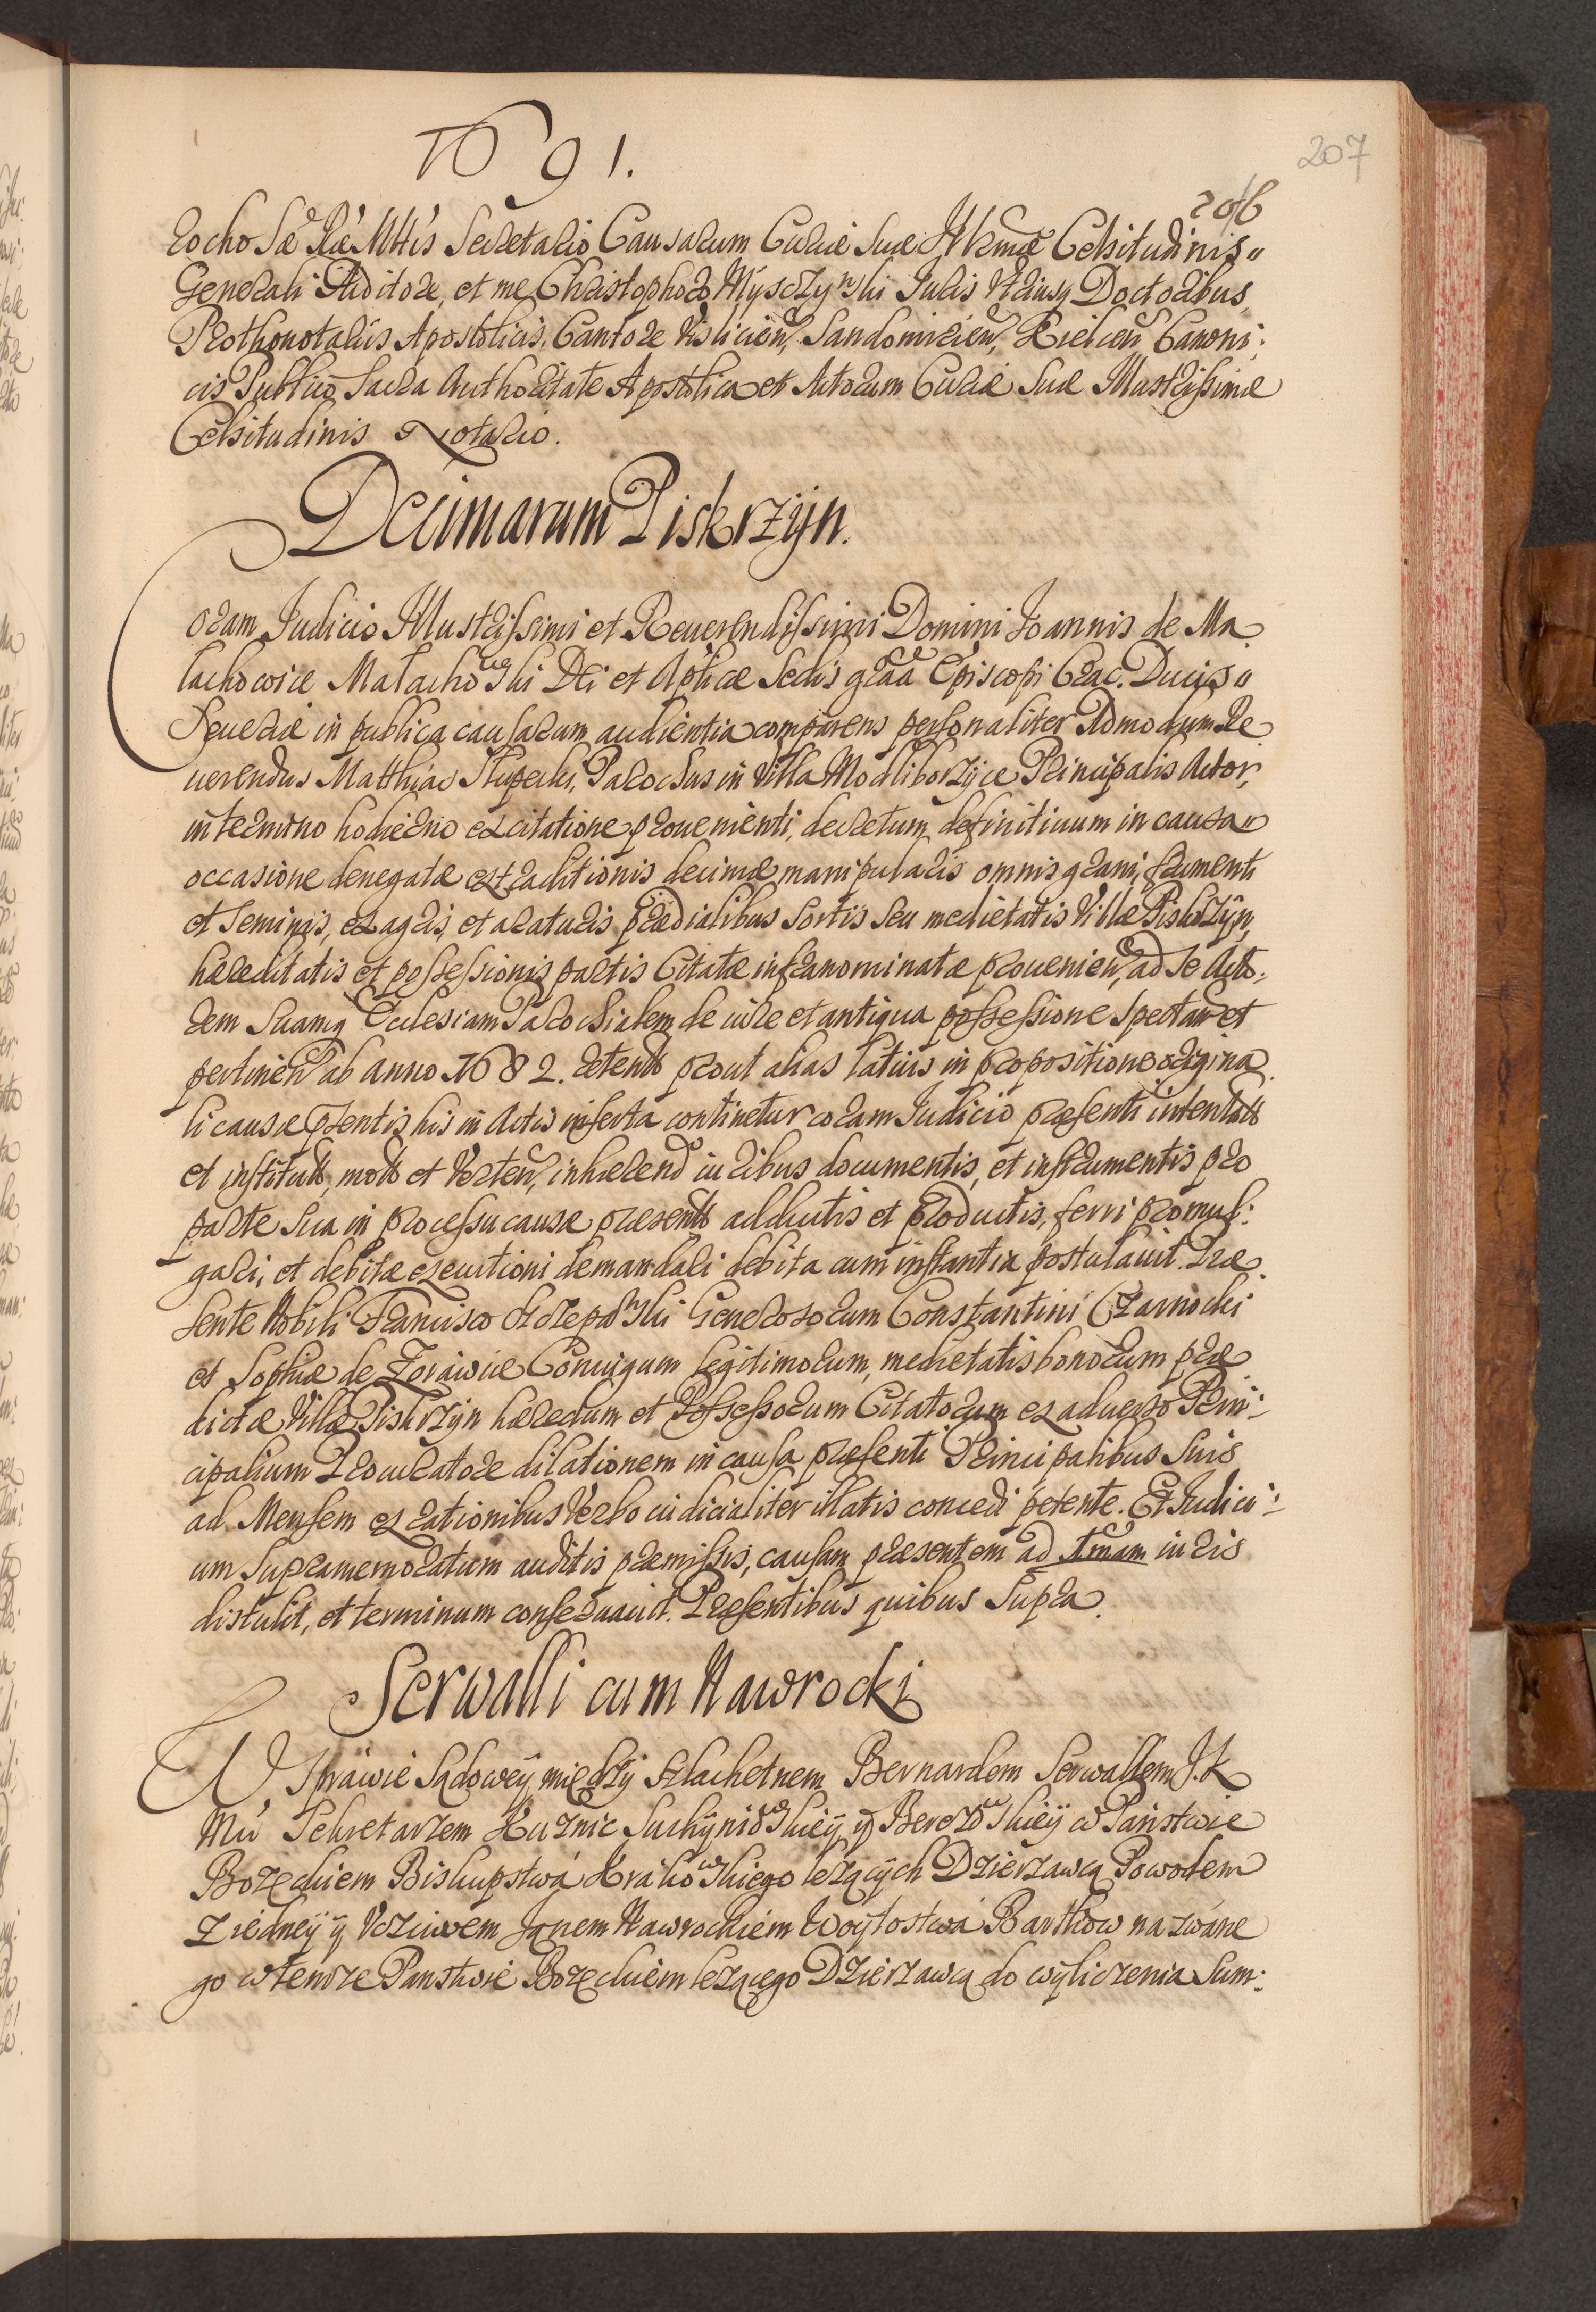 1691.
207
rocho Sæ Ræ Mttis Secretario Causarum Curiæ Suæ Illrmæ Celsitudinis
Generali Auditore, et me Christophoro Mysczyński Juris Vtriusq Doctoribus,
Prothonotariis Apostolicis, Cantore Vislicien, Sandomirien, Kielcen Canoni:
cis Publico Sacra Authoritate Apostolica et Actorum Curiæ Suæ Illustrissimæ
Celsitudinis Notario.
Decimarum Piskrzÿn.
Coram Judicio Illustrissimi et Reuerendissimi Domini Joannis de Ma
lachowice Małachowski Dei et Aplicæ Sedis graa Episcopi Crac. Ducis
Seueriæ in publica causarum audientia comparens personaliter Admodum Re
uerendus Matthias Słupecki, Parochus in Villa Modliborzÿce Principalis Actor,
in termino hodierno ex citatione proueniente, decretum definitiuum in causa
occasione denegatæ extraditionis decimæ manipularis omnis grani, frumenti
et Seminis, ex agris, et araturis prædialibus Sortis Seu medietatis Villæ Piskrzÿn,
hæreditatis et possessionis partis Citatæ infranominatæ prouenien, ad Se Acto:
rem Suamq Ecclesiam Parochialem de iure et antiqua possessione Spectan et
pertinen ab anno 1682. retent prout alias latius in propositione origina
li causæ psentis his in Actis inserta continetur coram Judicio præsenti intentat
et institut, mot et Verten, inhærend iuribus documentis, et instrumentis pro
parte Sua in processu causæ præsent adductis et productis, ferri promul:
gari, et debitæ executioni demandari debita cum instantia postulauit. Præ
sente Nobili Francisco Generosorum Constantini Czarnocki
et Sophiæ de Zorawice Coniugum legitimorum, medietatis bonorum præ
dictæ Villæ Piskrzÿn hæredum et Possessorum Citatorum ex aduerso Prin:
cipalium Procuratore dilationem in causa præsenti Principalibus Suis
ad Mensem ex rationibus Verbo iudicialiter illatis concedi petente. Et Judici:
um Supramemoratum auditis præmissis, causam præsentem ad Imam iuris
distulit, et terminum conseruauit. Præsentibus quibus Supra.
Serwalli cum Nawrocki
W Sprawie Sądoweÿ międzÿ Szlachetnem Bernardem Serwallem J. K
Mci Sekretarzem Kuznic Suchÿniowskieÿ ÿ Berezowskieÿ w Panstwie
Bozęckiem Biskupstwa Krakowskiego lezącÿch Dzierzawcą Powodem
z iedneÿ ÿ Vcziwem Janem Nawrockiem Woÿtostwa Bartkow nazwane
go w temze Panstwie Bozęckiem lezącego Dzierzawcą do wÿliczenia Sum: